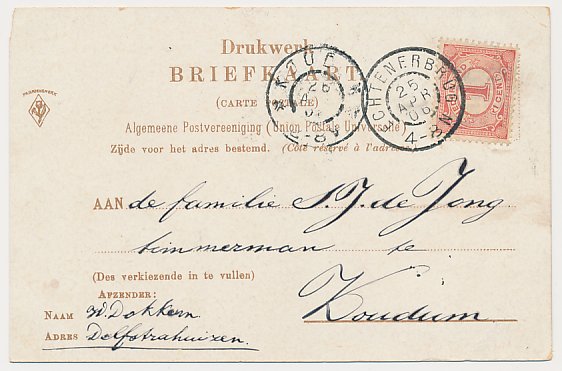 Drukwerk
BRIEFKAART
(CARTE POSTALE)
Algemeene Postvereeniging (Union Postale Universelle)
Zijde voor het adres bestemd. (Côté réservé à l'adresse)
AAN de familie S. J. de Jong
timmerman te
(Des verkiezende in te vullen)
Koudum
AFZENDER:
NAAM W. Dokkum
ADRES Delfstrahuizen.
ECHTENERBRUG
25
APR
06
4-8N
KOUD
26
1